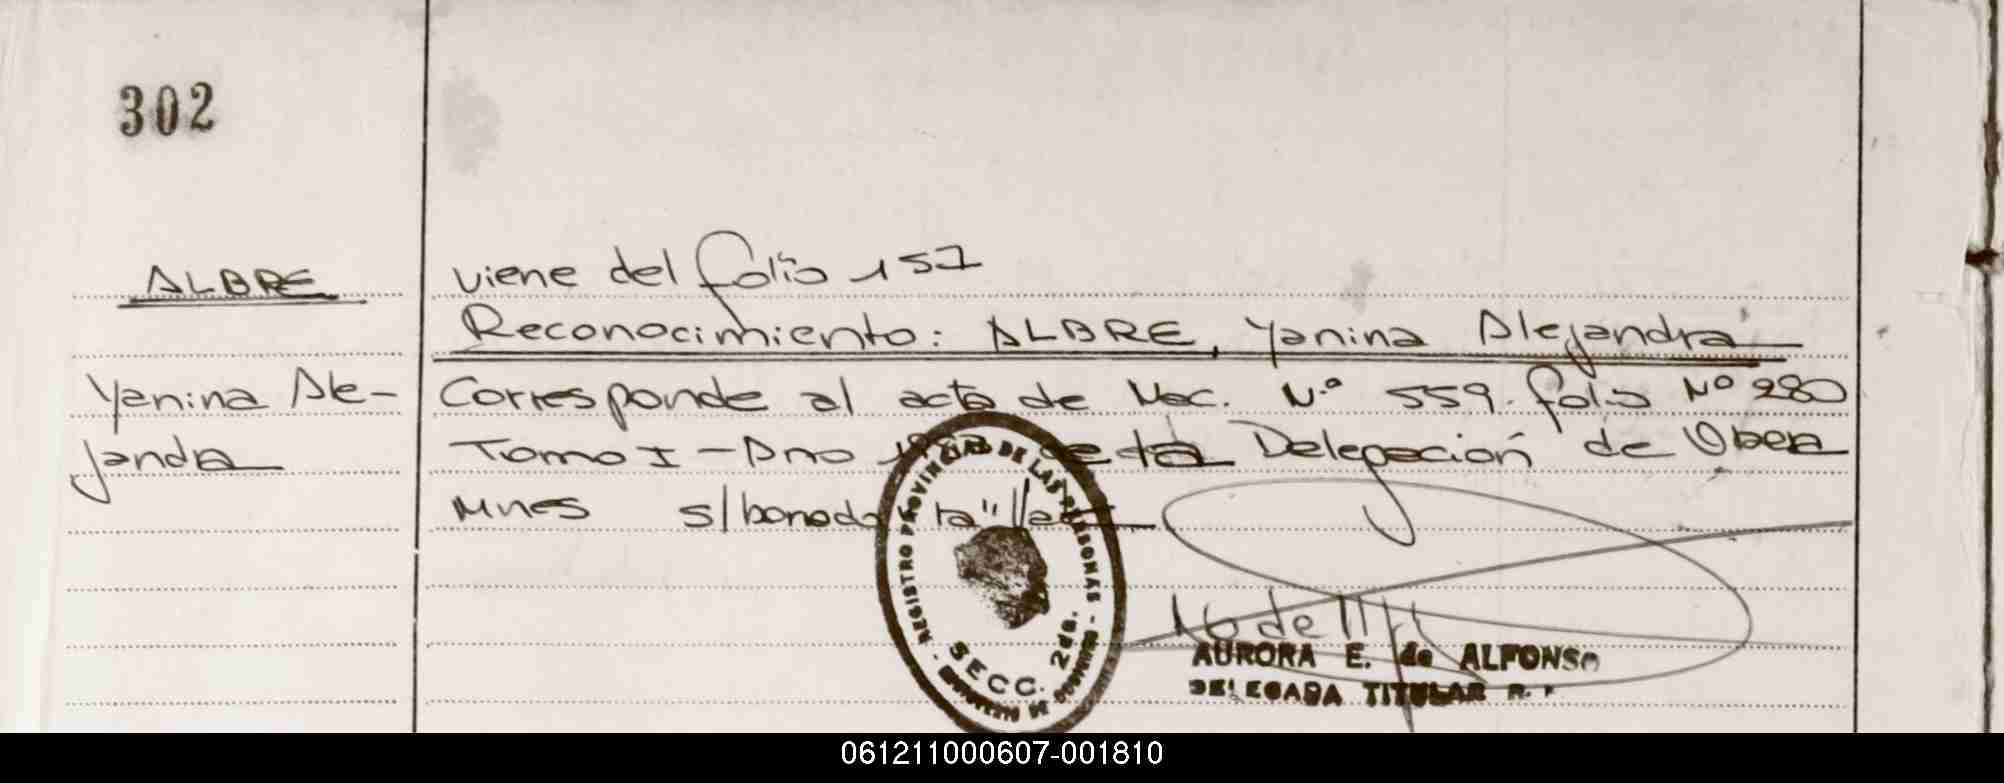 302
ALBRE
Yanina Ale-
jandra
viene del folio 157
Reconocimiento: ALBRE, Yanina Alejandra
Corresponde al acta de Nac. Nº 559. folio Nº 280
Tomo I - Año de la Delegación de Obera
Mnes s/borrado "la" Vale
REGISTRO PROVINCIAL DE LAS PERSONAS
SECC. 2da.
AURORA E. de ALFONSO
DELEGADA TITULAR R. P.
061211000607-001810